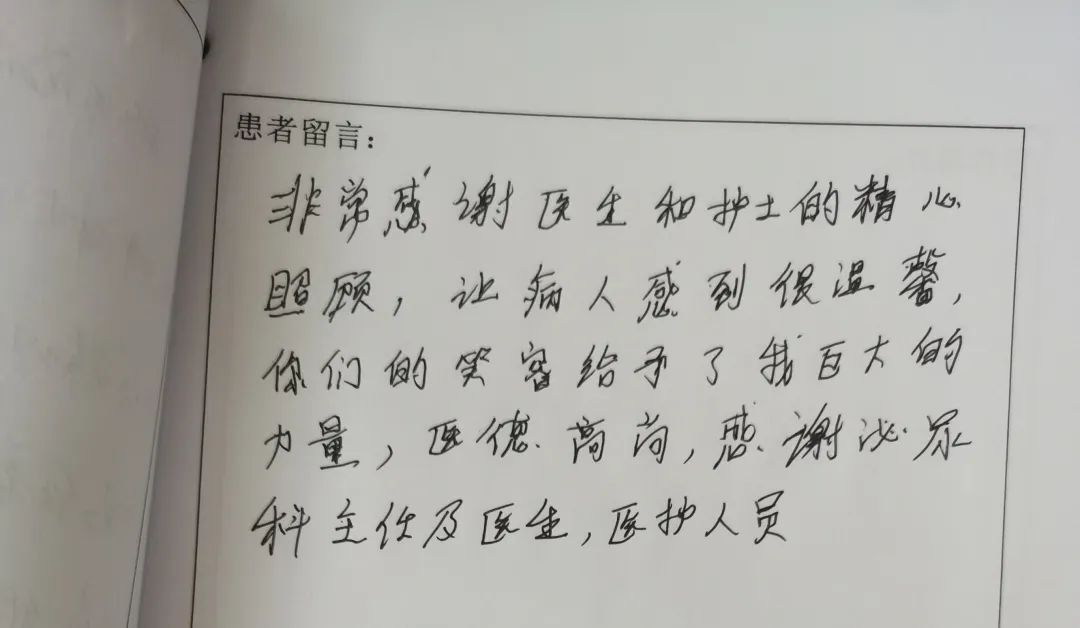 患者留言：
非常感谢医生和护士的精心
照顾，让病人感到很温馨，
你们的笑容给予了我巨大的
力量，医德高尚，感谢泌尿
科主任及医生，医护人员